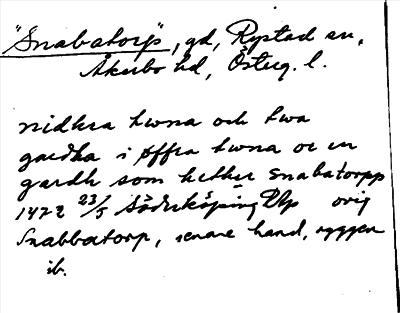 "Snabatorp", gd, Rystad sn,
Åkerbo hd, Österg. l.
nidhra hwna och twa
gardha i øffra hwna oc en
gardh som hether snabatorpp
1472 23/5 Söderköping Php orig
Snabbatorp, senare hand, ryggen
ib.